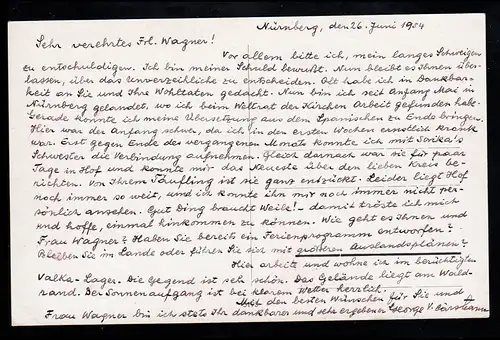 Nürnberg, den 26. Juni 1954
Sehr verehrtes Frl. Wagner!
Vor allem bitte ich, mein langes Schweigen
zu entschuldigen. Ich bin meiner Schuld bewußt. Nun bleibt es Ihnen über-
lassen, über das Unverzeihliche zu entscheiden. Oft habe ich in Dankbar-
keit an Sie und Ihre Wohltaten gedacht. Nun bin ich seit Anfang Mai in
Nürnberg gelandet, wo ich beim Weltrat der Kirchen Arbeit gefunden habe.
Gerade konnte ich meine Übersetzung aus dem Spanischen zu Ende bringen.
Hier war der Anfang schwer, da ich in den ersten Wochen ernstlich krank
war. Erst gegen Ende des vergangenen Monats konnte ich mit
Schwester die Verbindung aufnehmen. Gleich darnach war sie für paar
Tage in Hof und konnte mir das Neueste über den lieben Kreis be-
richten. Von Ihrem Täufling ist sie ganz entzückt. Leider liegt Hof
noch immer so weit, und ich konnte ihn mir noch immer nicht per-
sönlich ansehen. Gut Ding braucht Weile! damit tröste ich mich
und hoffe, einmal hinkommen zu können. Wie geht es Ihnen und
Frau Wagner? Haben Sie bereits ein Ferienprogramm entworfen?
Bleiben Sie im Lande oder führen Sie sich mit größeren Auslandsplänen?
Hier arbeite und wohne ich im berüchtigten
Valka-Lager. Die Gegend ist sehr schön. Das Gelände liegt am Wald-
rand. Der Sonnenaufgang ist bei klarem Wetter herrlich.
Mit den besten Wünschen für Sie und
Frau Wagner bin ich stets Ihr dankbarer und sehr ergebener George V.